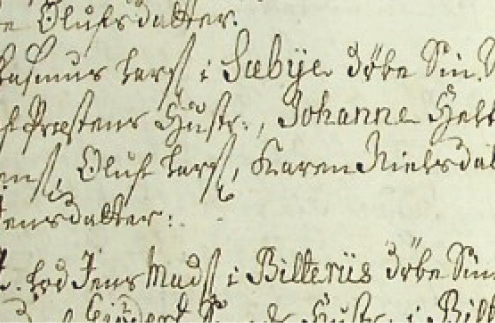 e Olufsdatter.
Rasmus Larss: i Sæbÿe döbe Sin
af Præstens Hustr:, Johanne
Jens, Oluf Larss, Karen Nielsdat
Jensdatter:
lod Jens Madss i Bilteriis döbe Sin
Hustr: i Bilt